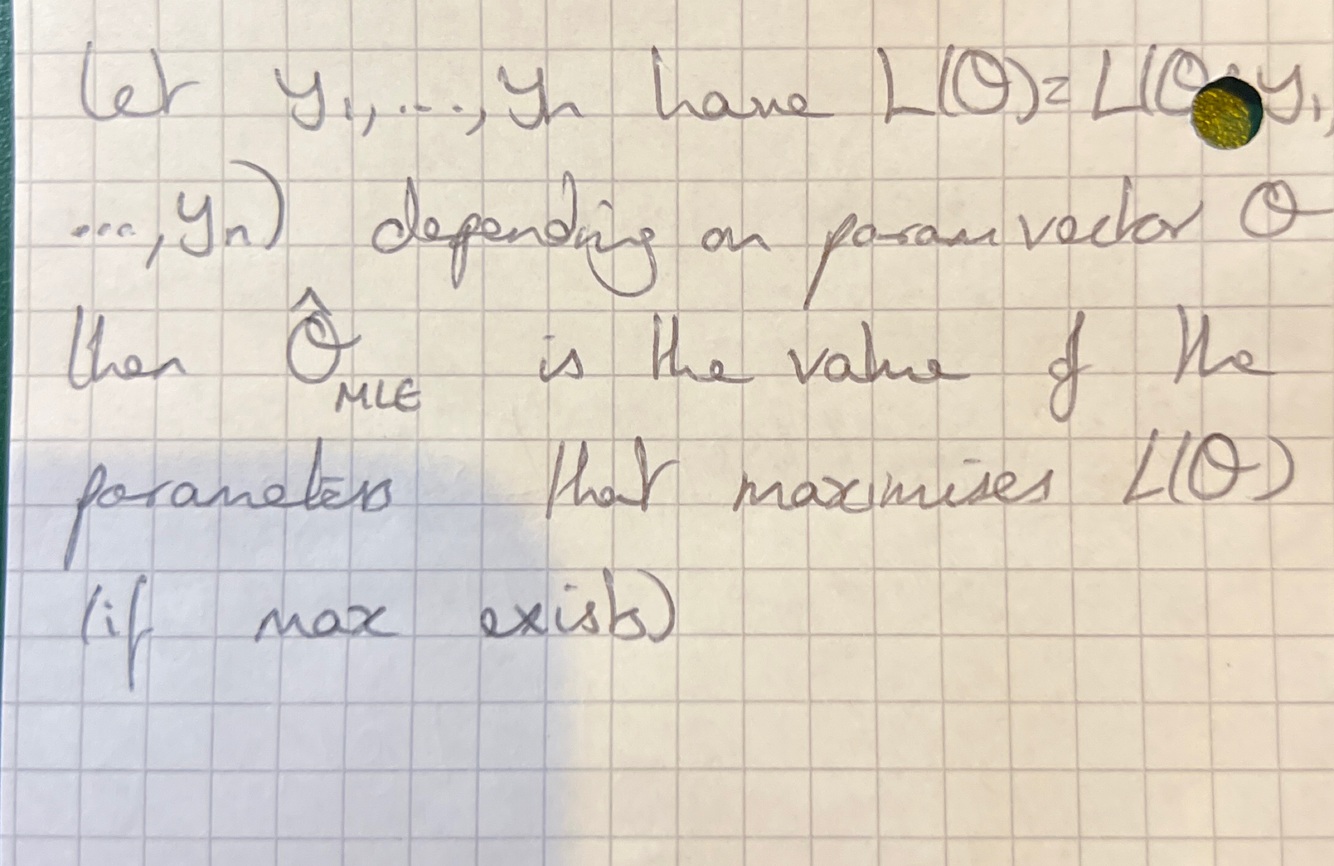 Let y₁,...,yₙ have L(θ)=L(θ;y₁,
...,yₙ) depending on param vector θ
then θ̂_MLE is the value of the
parameters that maximises L(θ)
(if max exists)